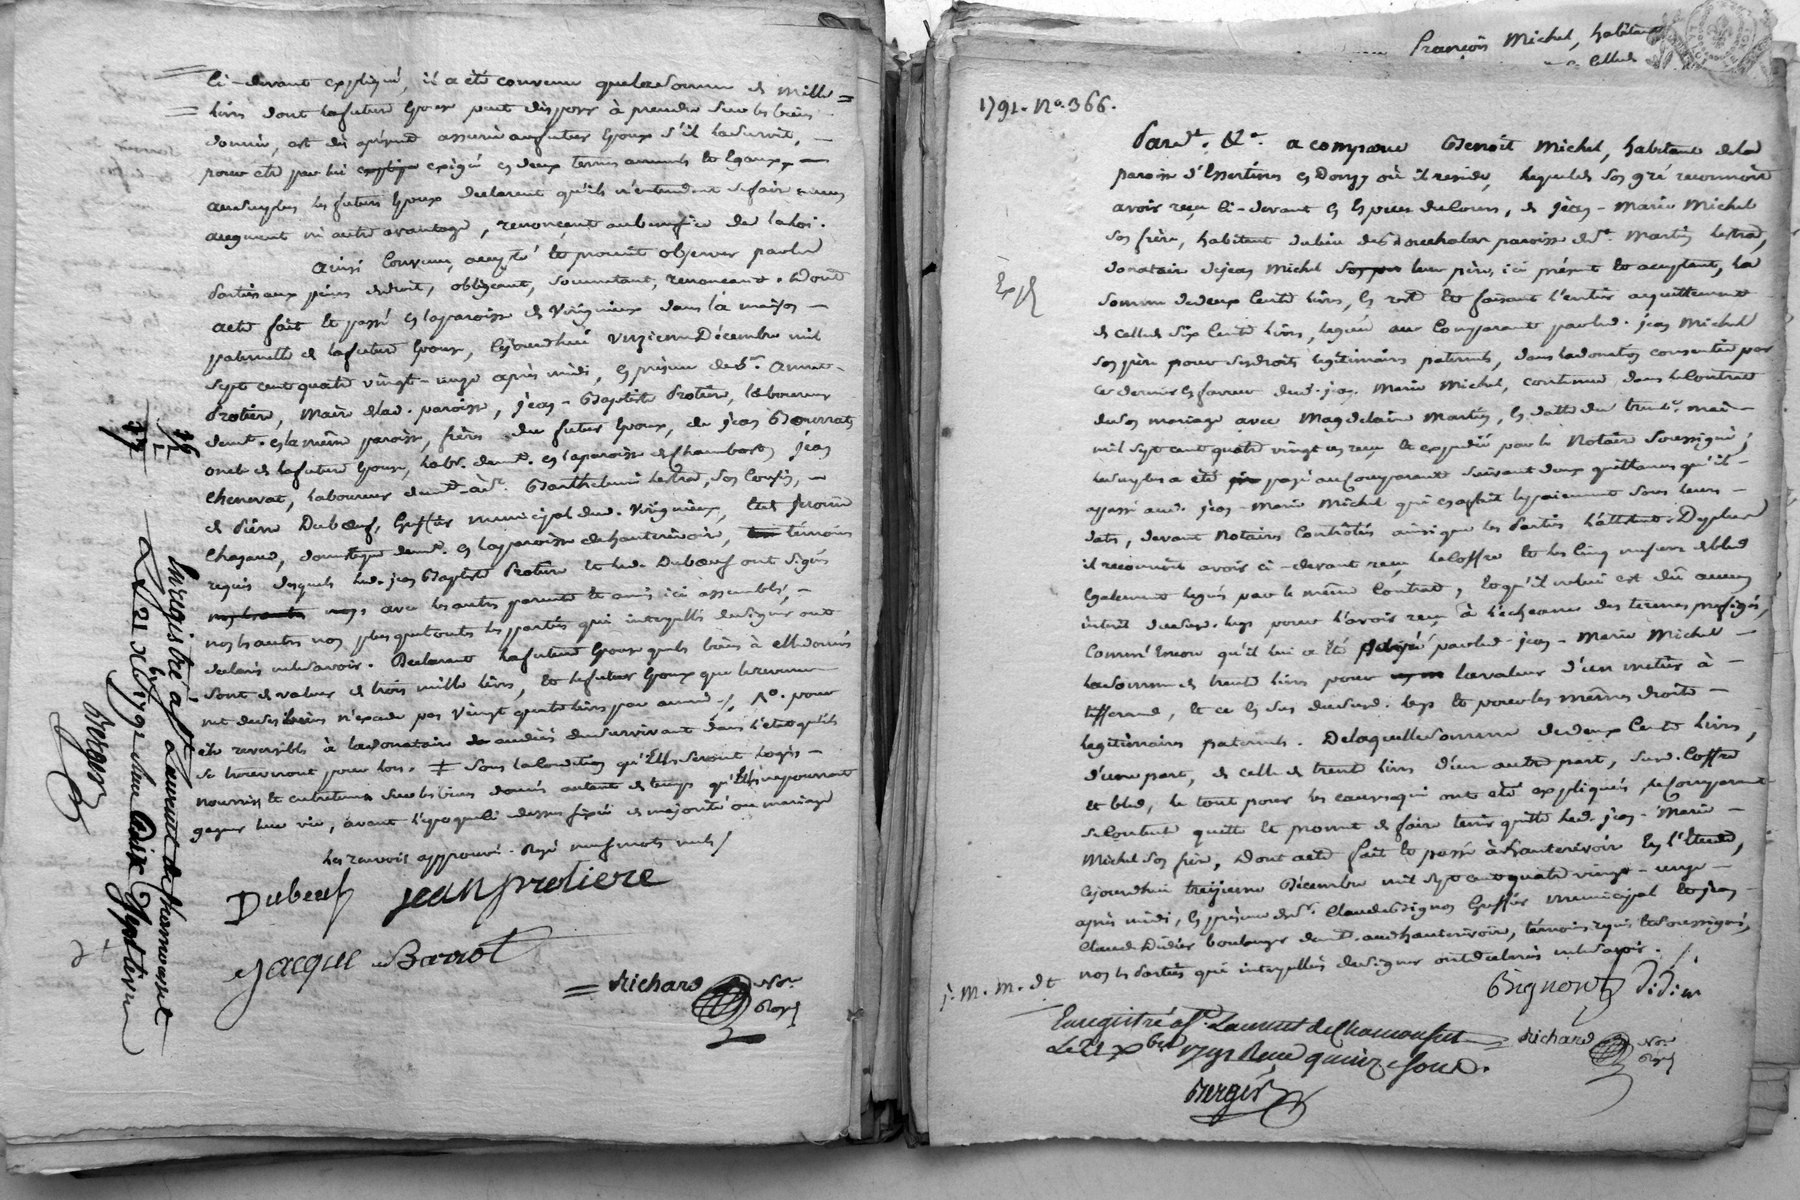 ci-devant expliqué, il a été convenu que la somme de mille
livres dont la future Epouse peut disposer à prendre sur les biens
donnés, est dès à présent assurée au futur Epoux s'il la survit,
pour être par lui exigée en deux termes annuels et Egaux,
au surplus les futurs Epoux declarent qu'ils n'entendent se faire aucun
augment ni autre avantage, renonçant au benefice de la loi.
Ainsi Convenu, accepté et promis observer par les
Parties aux peines de droit, obligeant, soumettant, renonçant. Dont
acte fait et passé en la paroisse de Virigneux dans la maison
paternelle de la future Epouse, Cejourd'hui Décembre mil
sept cent quatre vingt-onze après midi, en présence de sr.
Protière, Maire de lad. paroisse, jean-Baptiste Protière, laboureur
demt. en la même paroisse, frères du futur Epoux, de jean
oncle de la future Epouse, labr. demt. en la paroisse de Chambost, jean
Chenevat, laboureur demt. à St. Barthelemi Lestra, son Cousin,
et Pierre Duboeuf, Greffier municipal dud. Virigneux,
domestique demt. en la paroisse de hauterivoir, témoins
requis desquels led. jean Baptiste Protière et led. Duboeuf ont signé
avec les autres parents et amis ici assemblés,
non les autres non plus que toutes les parties qui interpellés de signer ont
declaré ne le savoir. Declarant la future Epouse que les biens à elle donnés
sont de valeur de trois mille livres, et le futur Epoux que le revenu
net de ses biens n'excede pas Vingt quatre livres par année
être reversible à la donataire du survivant dans l'état qu'ils
se trouveront pour lors. sous la Condition qu'Elles seront Logées
nourries et entretenues sur les biens donnés autant de temps qu'Elles ne pourront
gagner leur vie, avant l'epoque ci dessus fixée de majorité ou mariage
Les renvois approuvés. Rayé neuf mots nuls
Dubeuf jean protiere
jacque Barriot
Richard Nre. Royal
Enregistré à St. Laurent de Chamousset
Le 21 Xbre 1791
Berger
François Michel, habitant
1791. No. 366.
Pardt. &a. a comparu Benoit Michel, habitant de la
paroisse d'Essertines en Donzy où il reside, lequel de son gré reconnoit
avoir reçu ci-devant en Espèces de Cours, de jean-Marie Michel
son frère, habitant du lieu de paroisse de St. Martin Lestra,
donataire de jean Michel leur père, ici présent et acceptant, la
somme de deux Cents livres, en reste et faisant l'entier acquittement
de celle de six Cents livres, leguée au Comparant par led. jean Michel
son père pour ses droits legitimaires paternels, dans la donation consentie par
ce dernier en faveur dud. jean Marie Michel, contenue dans le Contrat
de son mariage avec Magdelaine Martin, en datte du trente mai
mil sept cent quatre vingt reçu et expedié par le Notaire soussigné;
le surplus a été payé au Comparant suivant deux quittances qu'il
a passé aud. jean-Marie Michel qui en a fait le paiement sous leurs
dates, devant Notaires Contrôlées ainsi que les Parties l'attestent. De plus
il reconnoit avoir ci-devant reçu le Coffre et les Cinq mesures de bled
Egalement legués par le même Contrat, et qu'il ne lui est dû aucun
interêt dususd. legs pour l'avoir reçu à l'echeance des termes prefigés,
Comm' Encore qu'il lui a été payé par led. jean-Marie Michel
la somme de trente livres pour la valeur d'un metier à
tisserand, et ce en sus dususd. legs et pour les mêmes droits
legitimaires paternels. De laquelle somme de deux Cents livres,
d'une part, de celle de trente livres d'un autre part, susd. Coffre
et bled, le tout pour les causes qui ont été expliquées, le Comparant
se Contente quitte et promet de faire tenir quitte led. jean-Marie
Michel son frère, Dont acte fait et passé à hauterivoir En l'Etude,
Cejourd'hui treizieme Décembre mil sept cent quatre vingt-onze
après midi, en présence de sr. Claude Bignon Greffier municipal et jean
Claude Didier boulanger demt. aud. hauterivoir, témoins requis et soussignés,
non les Parties qui interpellées de signer ont declaré ne le savoir.
j. M. M. dt
Bignon Didier
Richard Nre. Royal
Enregistré à St. Laurent de Chamousset
Le 21 Xbre 1791 Reçu quinze sous.
Berger